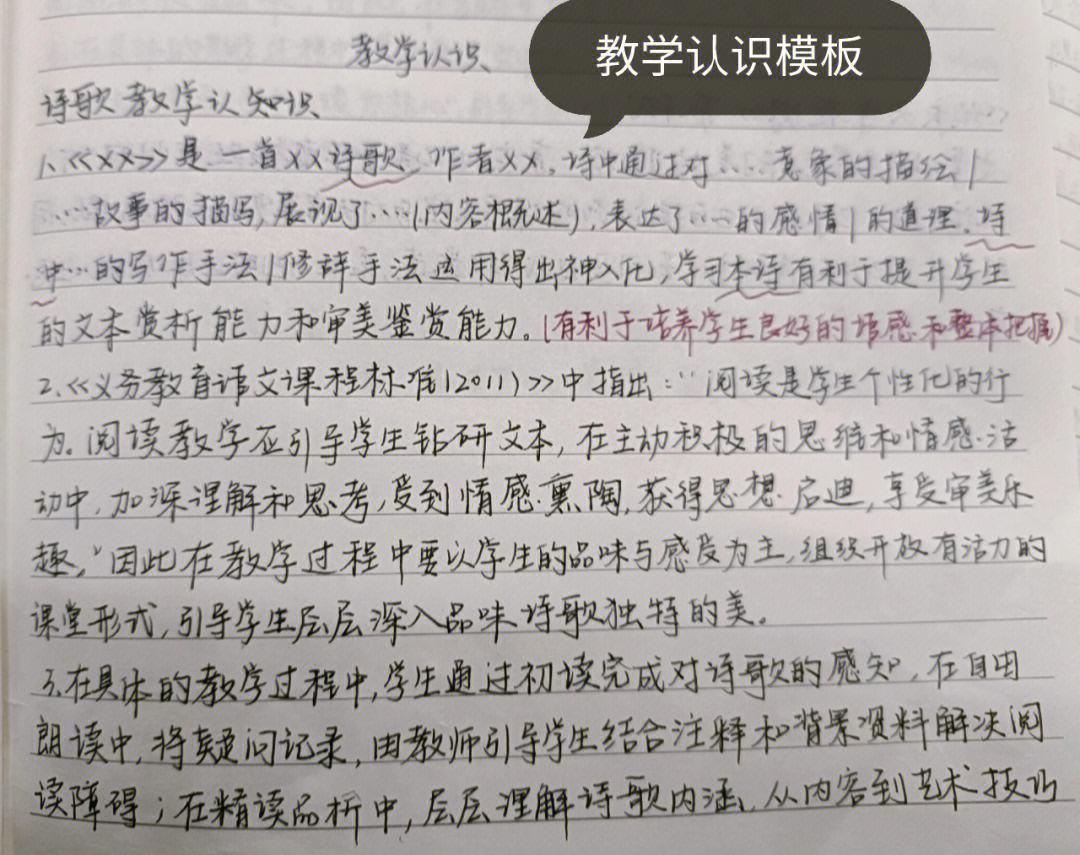 教学认识
教学认识模板
诗歌教学认知识
1.《XX》是一首XX诗歌,作者XX,诗中通过对……意象的描绘/
……故事的描写,展现了……(内容概述),表达了……的感情/的道理.诗
中…的写作手法/修辞手法运用得出神入化,学习本诗有利于提升学生
的文本赏析能力和审美鉴赏能力。(有利于培养学生良好的语感和整体把握)
2.《义务教育语文课程标准(2011)》中指出:“阅读是学生个性化的行
为。阅读教学应引导学生钻研文本,在主动积极的思维和情感活
动中,加深理解和思考,受到情感熏陶,获得思想启迪,享受审美乐
趣,”因此在教学过程中要以学生的品味与感受为主,组织开放有活力的
课堂形式,引导学生层层深入品味诗歌独特的美。
3.在具体的教学过程中,学生通过初读完成对诗歌的感知,在自由
朗读中,将疑问记录,由教师引导学生结合注释和背景资料解决阅
读障碍;在精读品析中,层层理解诗歌内涵、从内容到艺术技巧